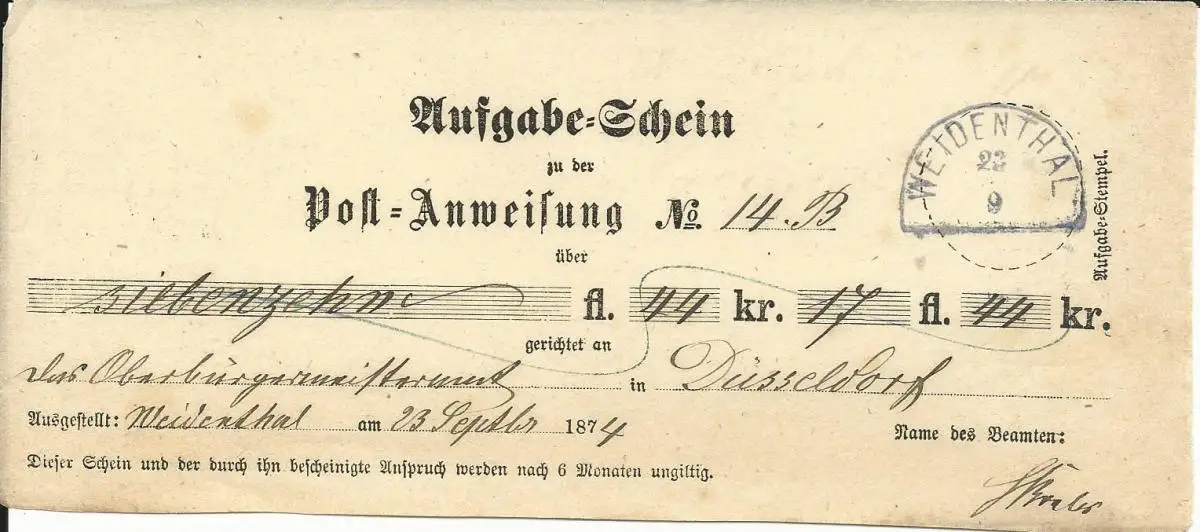 Aufgabe-Schein
zu der
Post-Anweisung No. 14. B
über
siebenzehn fl. 44 kr. 17 fl. 44 kr.
gerichtet an
das Oberbürgermeisteramt in Düsseldorf
Ausgestellt: Weidenthal am 23 Septbr 1874
Name des Beamten:
Dieser Schein und der durch ihn bescheinigte Anspruch werden nach 6 Monaten ungiltig.
WEIDENTHAL
23
9
Aufgabe-Stempel.